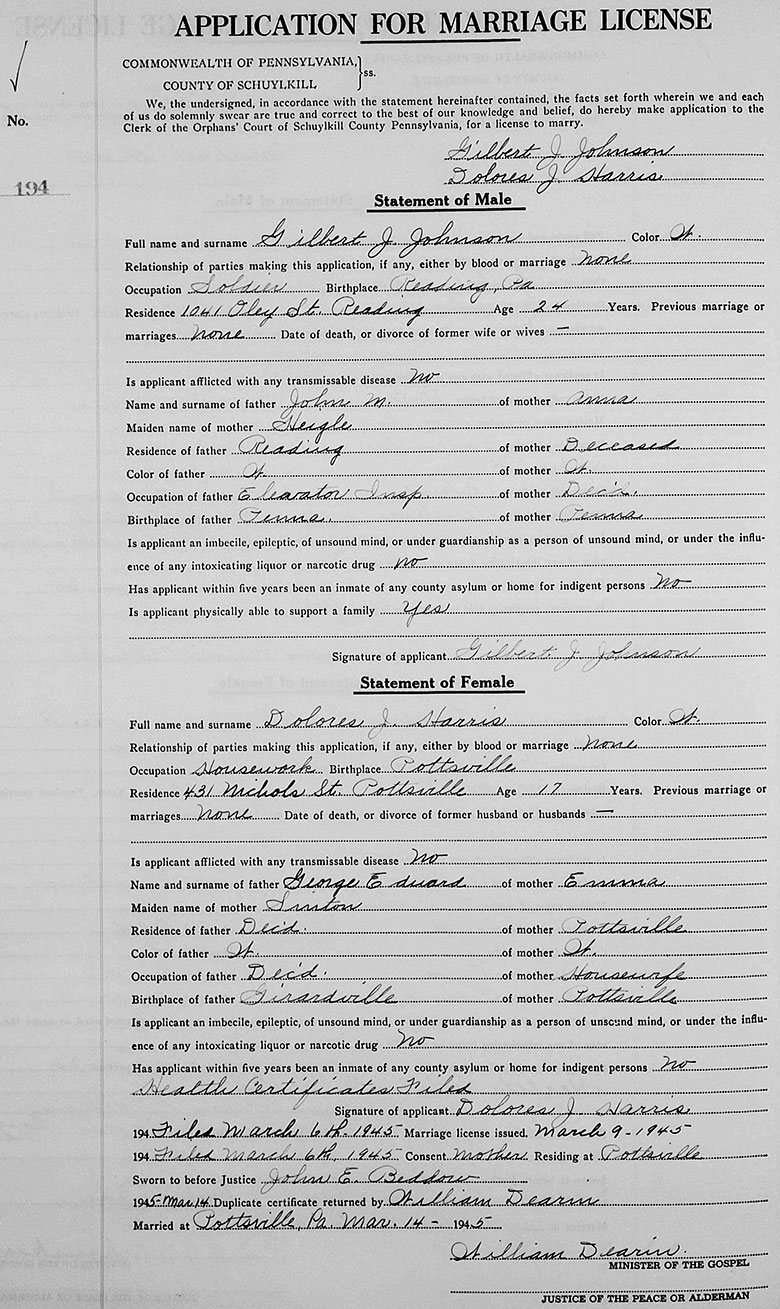 APPLICATION FOR MARRIAGE LICENSE
COMMONWEALTH OF PENNSYLVANIA,
COUNTY OF SCHUYLKILL } ss.
We, the undersigned, in accordance with the statement hereinafter contained, the facts set forth wherein we and each
of us do solemnly swear are true and correct to the best of our knowledge and belief, do hereby make application to the
Clerk of the Orphans' Court of Schuylkill County Pennsylvania, for a license to marry.
No.
Gilbert J. Johnson
Dolores J. Harris
194
Statement of Male
Full name and surname Gilbert J. Johnson Color W.
Relationship of parties making this application, if any, either by blood or marriage None
Occupation Soldier Birthplace Reading, Pa
Residence 1041 Oley St. Reading Age 24 Years. Previous marriage or
marriages None Date of death, or divorce of former wife or wives —
Is applicant afflicted with any transmissable disease No
Name and surname of father John M. of mother Anna
Maiden name of mother Heigle
Residence of father Reading of mother Deceased
Color of father W. of mother W.
Occupation of father Elevator Insp. of mother Dec'd.
Birthplace of father Penna. of mother Penna
Is applicant an imbecile, epileptic, of unsound mind, or under guardianship as a person of unsound mind, or under the influ-
ence of any intoxicating liquor or narcotic drug No
Has applicant within five years been an inmate of any county asylum or home for indigent persons No
Is applicant physically able to support a family Yes
Signature of applicant Gilbert J. Johnson
Statement of Female
Full name and surname Dolores J. Harris Color W.
Relationship of parties making this application, if any, either by blood or marriage None
Occupation Housework Birthplace Pottsville
Residence 431 Nichols St. Pottsville Age 17 Years. Previous marriage or
marriages None Date of death, or divorce of former husband or husbands —
Is applicant afflicted with any transmissable disease No
Name and surname of father George Edward of mother Emma
Maiden name of mother Sinton
Residence of father Dec'd. of mother Pottsville
Color of father W. of mother W.
Occupation of father Dec'd. of mother Housewife
Birthplace of father Girardville of mother Pottsville
Is applicant an imbecile, epileptic, of unsound mind, or under guardianship as a person of unsound mind, or under the influ-
ence of any intoxicating liquor or narcotic drug No
Has applicant within five years been an inmate of any county asylum or home for indigent persons No
Health Certificates Filed
Signature of applicant Dolores J. Harris
194 Filed March 6th, 1945 Marriage license issued March 9-1945
194 Filed March 6th, 1945 Consent Mother Residing at Pottsville
Sworn to before Justice John E. Beddow
1945-Mar 14 Duplicate certificate returned by William Dearin
Married at Pottsville, Pa. Mar. 14- 1945
William Dearin.
MINISTER OF THE GOSPEL
JUSTICE OF THE PEACE OR ALDERMAN